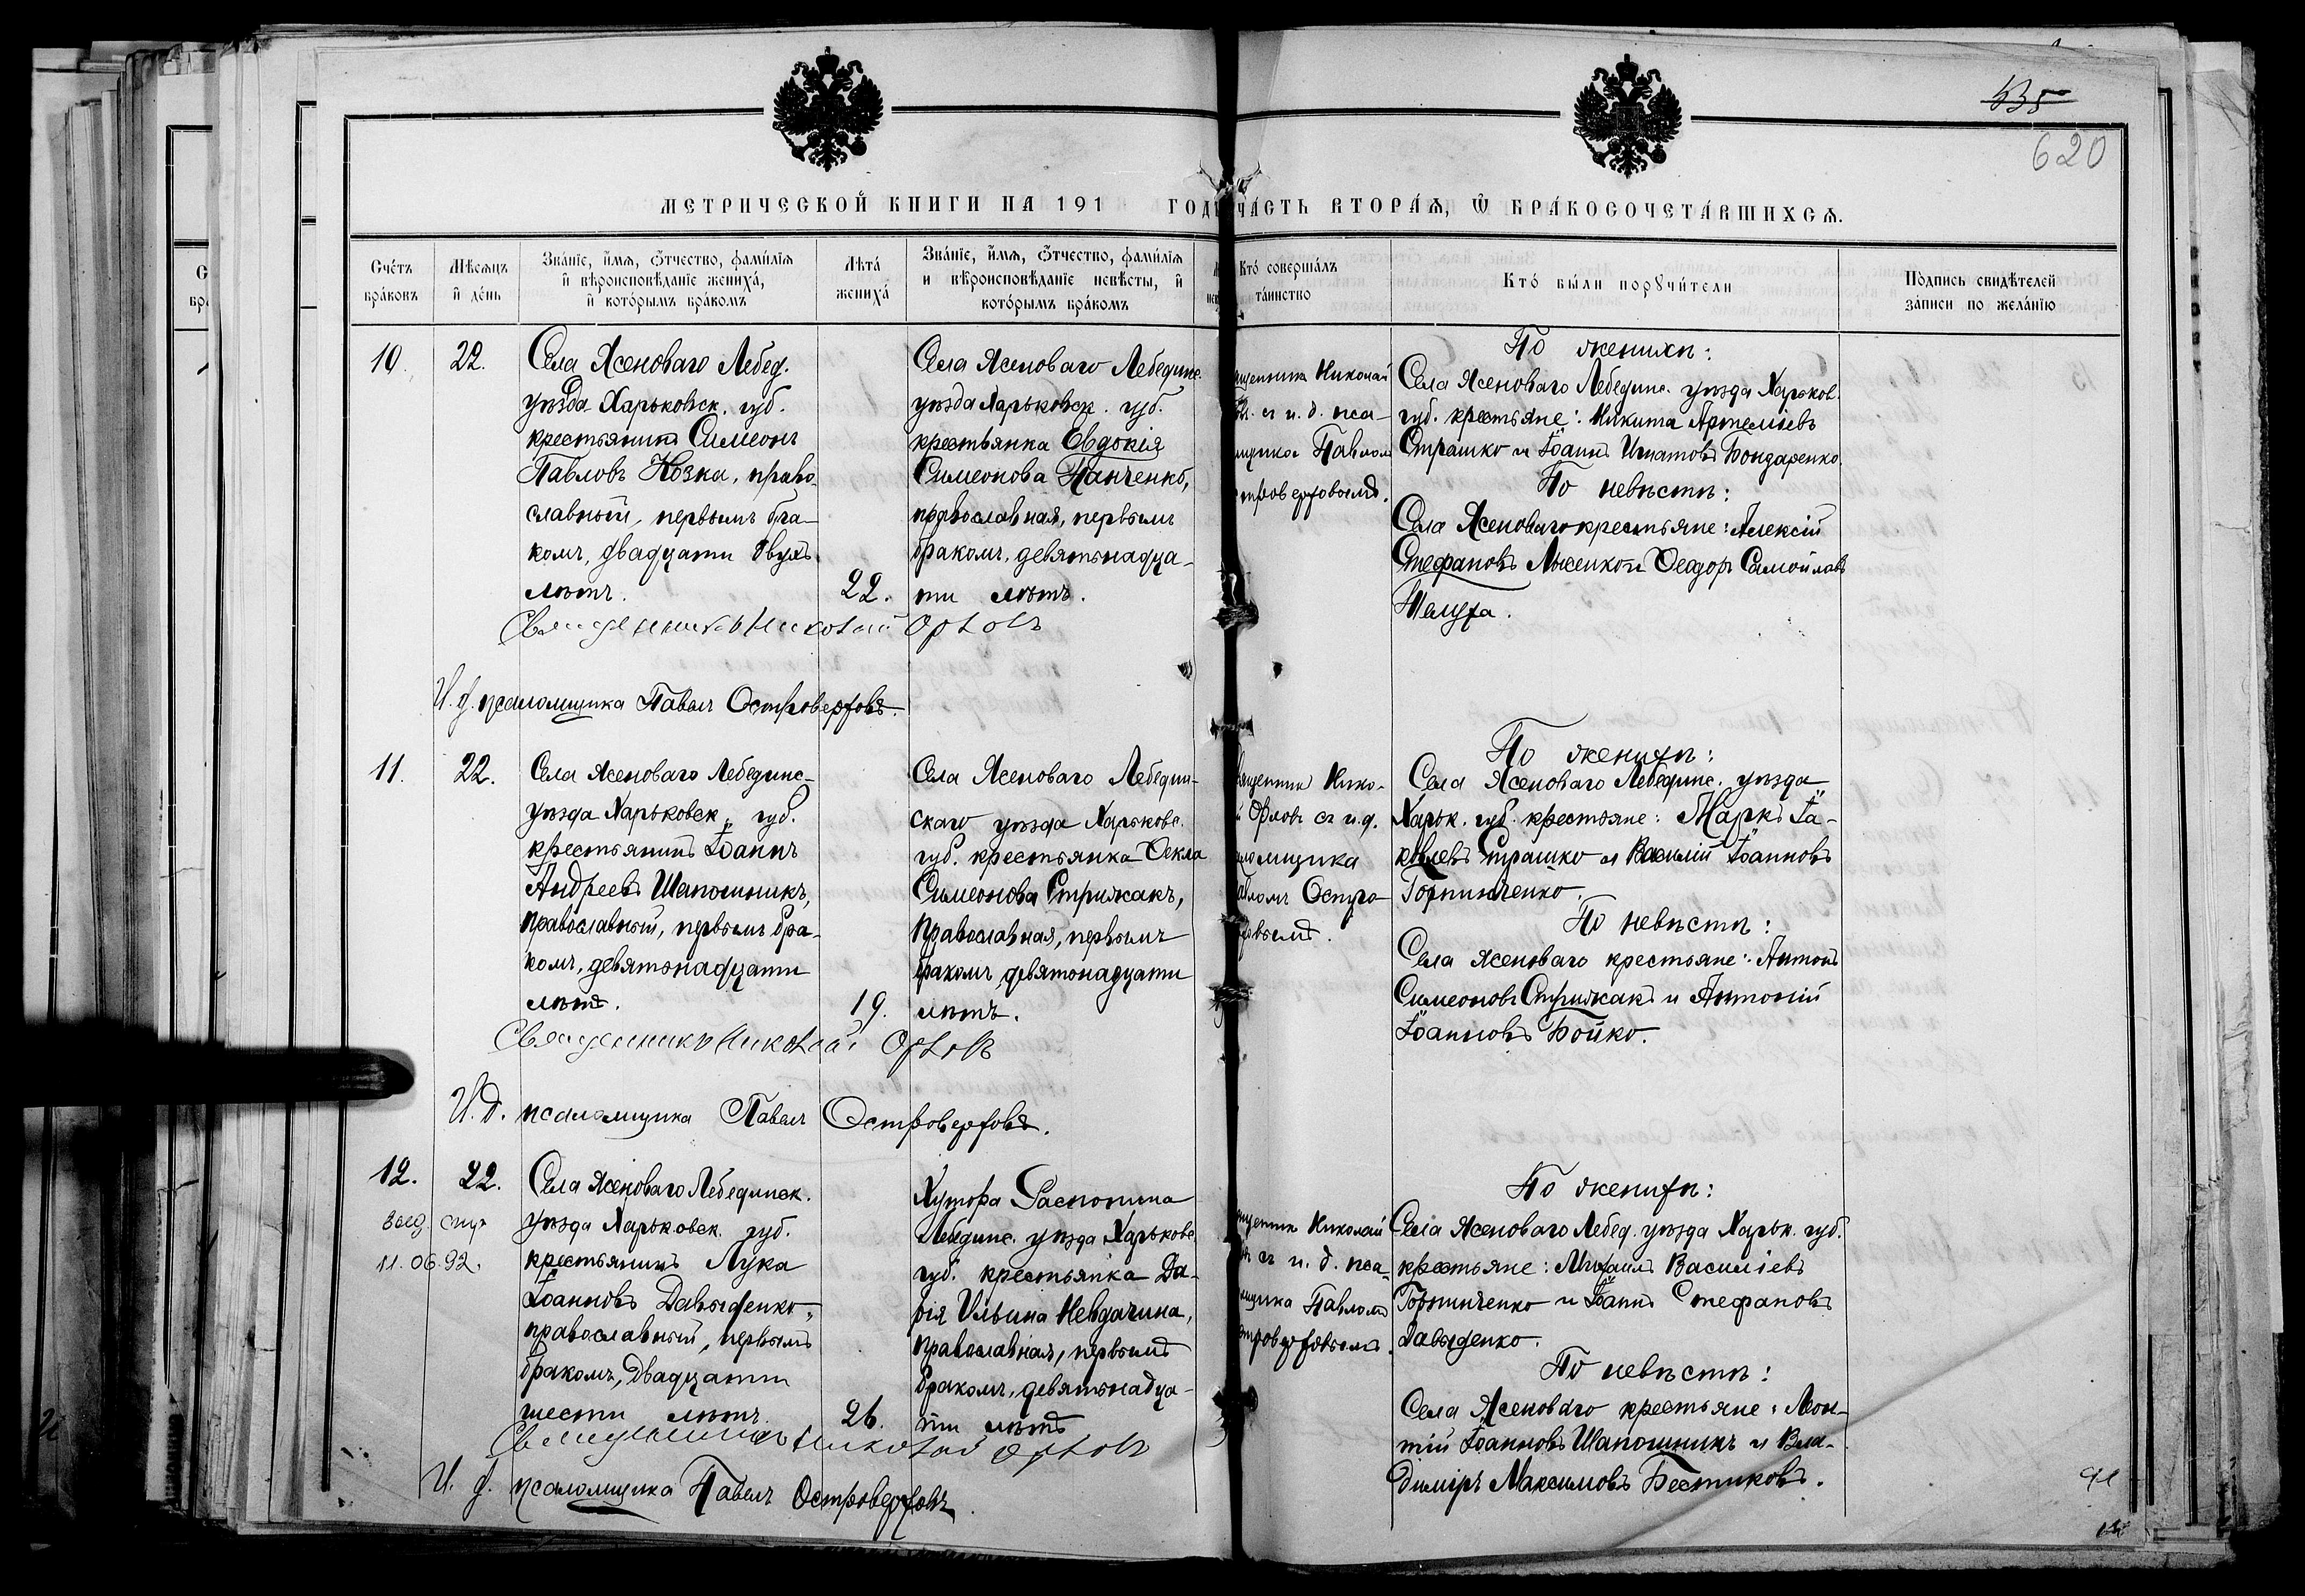 535
620
МЕТРИЧЕСКОЙ КНИГИ НА 191 ГОДЪ ЧА́СТЬ ВТОРА́Ѧ, Ѿ БРА́КОСОЧЕТА́ВШИХСѦ.
Сче́тъ бра́ковъ
Мѣ́сѧцъ и҆ де́нь
Зва́нїе, и҆́мѧ, ѻ҆́тчество, фами́лїѧ
и҆ вѣроисповѣ́данїе жениха́,
и҆ кото́рымъ бра́комъ
Лѣта́ жениха́
Зва́нїе, и҆́мѧ, ѻ҆́тчество, фами́лїѧ
и вѣроисповѣ́данїе невѣ́сты, и҆
кото́рымъ бра́комъ
Кто́ соверша́лъ
та́инство
Кто́ бы́ли порꙋчи́тели
По́дпись свидѣ́телей
за́писи по жела́нїю
10.
22.
Села Ясеноваго Лебед.
уѣзда Харьковск. губ.
крестьянинъ Симеонъ
Павловъ Козка, право-
славный, первымъ бра-
комъ, двадцати двухъ
лѣтъ.
22.
Села Ясеноваго Лебединс.
уѣзда Харьковск. губ.
крестьянка Евдокія
Симеонова Панченко,
православная, первымъ
бракомъ, девятьнадца-
ти лѣтъ.
Священникъ Николай Орловъ
И. д. псаломщика Павелъ Островерховъ.
щенникъ Николай
съ и. д. пса-
мщика Павлом
стровертовымъ.
По женихѣ:
Села Ясеноваго Лебединс. уѣзда Харьков.
губ. крестьяне: Никита Артеміевъ
Страшко и Іоаннъ Игнатовъ Бондаренко.
По невѣстѣ:
Села Ясеноваго крестьяне: Алексій
Стефановъ Лысенко и Ѳеодоръ Самойловъ
Шелуха.
11.
22.
Села Ясеноваго Лебединс-
уѣзда Харьковск. губ.
крестьянинъ Іоаннъ
Андреевъ Шапошникъ,
православный, первымъ бра-
комъ, девятьнадцати
лѣтъ.
19.
Села Ясеноваго Лебедин-
скаго уѣзда Харьковс.
губ. крестьянка Ѳекла
Симеонова Стрижакъ,
православная, первымъ
бракомъ, девятьнадцати
лѣтъ.
Священникъ Николай Орловъ
И. д. псаломщика Павелъ Островерховъ.
вященник Нико-
й Орловъ съ и. д.
аломщика
авломъ Остро-
ховымъ.
По женихѣ:
Села Ясеноваго Лебединс. уѣзда
Харьк. губ. крестьяне: Маркъ Іа-
ковлевъ Страшко и Василій Іоанновъ
Горпинченко.
По невѣстѣ:
Села Ясеноваго крестьяне: Антонъ
Симеоновъ Стрижакъ и Антоній
Іоанновъ Бойко.
12.
22.
11.06.92.
Села Ясеноваго Лебединск.
уѣзда Харьковск. губ.
крестьянинъ Лука
Іоанновъ Давыденко,
православный, первымъ
бракомъ, двадцати
шести лѣтъ.
26.
Хутора Распопина
Лебединс. уѣзда Харьковс.
губ. крестьянка Да-
рія Ильина Невдачина,
православная, первымъ
бракомъ, девятьнадца-
ти лѣтъ
Священникъ Николай Орловъ
И. д. псаломщика Павелъ Островерховъ.
щенник Николай
съ и. д. пса-
мщика Павломъ
стровертовымъ.
По женихѣ:
Села Ясеноваго Лебед. уѣзда Харьк. губ.
крестьяне: Михаилъ Василіевъ
Горпинченко и Іоаннъ Стефановъ
Давыденко.
По невѣстѣ:
Села Ясеноваго крестьяне: Леон-
тій Іоанновъ Шапошникъ и Вла-
диміръ Максимовъ Бестиковъ.